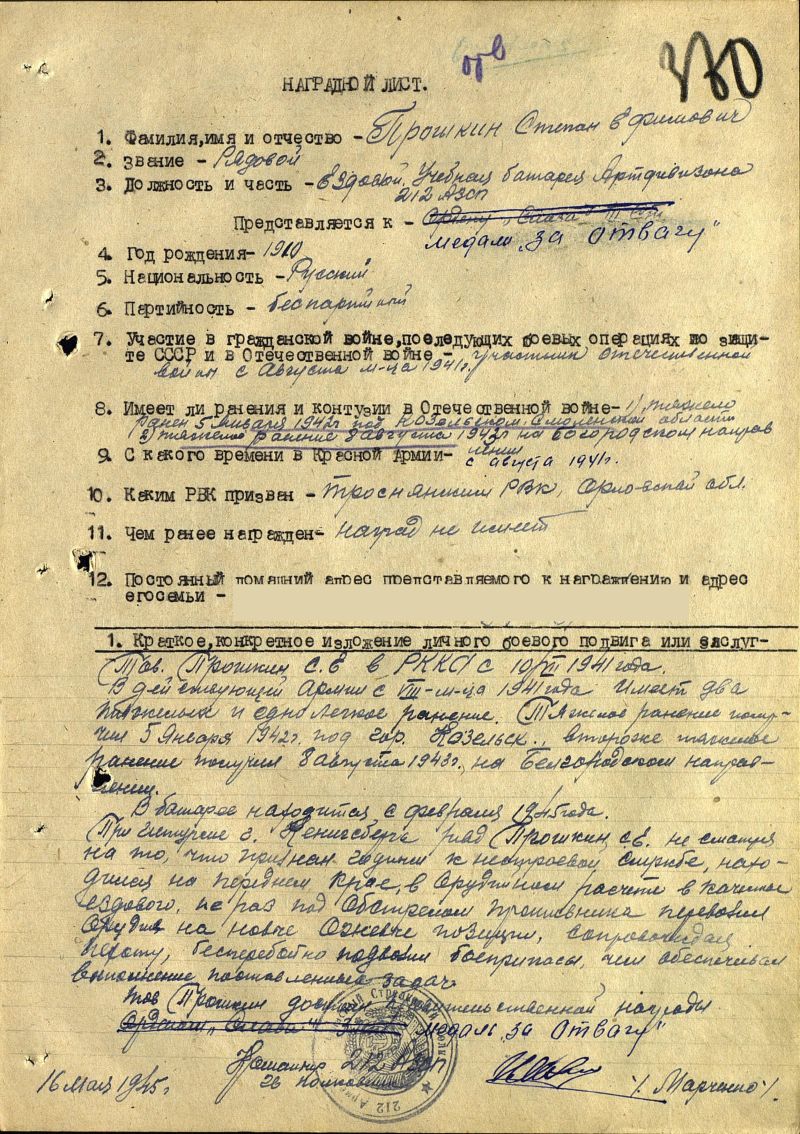 330
НАГРАДНОЙ ЛИСТ.
1. Фамилия,имя и отчество - Прошкин Степан Ефимович
2. Звание - Рядовой
3. Должность и часть - Ездовой. Учебная батарея Артдивизиона
212 АЗСП
Представляется к - Ордену „Слава" III ст
медали „за Отвагу"
4. Год рождения- 1910
5. Национальность - Русский
6. Партийность - беспартийный
7. Участие в гражданской войне,последующих боевых операциях по защи-
те СССР и в Отечественной войне - участник отечественной
войны с Августа м-ца 1941г.
8. Имеет ли ранения и контузии в Отечественной войне- 1) тяжело
ранен 5 января 1942г под Козельском Смоленской области
2) тяжелое ранение 8 августа 1942г на Богородском направ
9. С какого времени в Красной Армии- лении
с августа 1941г.
10. Каким РВК призван - Троснянским РВК, Орловской обл.
11. Чем ранее награжден- наград не имеет
12. Постоянный домашний адрес представляемого к награждению и адрес
егосемьи -
1. Краткое,конкретное изложение личного боевого подвига или заслуг-
Тов. Прошкин С.Е в РККА с 10/VII 1941 года.
В действующей Армии с VIII-м-ца 1941 года Имеет два
тяжелых и одно легкое ранение. Тяжелое ранение полу-
чил 5 Января 1942г. под гор. Козельск., второже тяжелое
ранение получил 8 августа 1943г. на Белгородском направ-
лении.
В батарее находится с февраля 1945 года.
При штурме г. Кенигсберга ряд Прошкин С.Е. не смотря
на то, что признан годным к нестроевой службе, нахо-
дился на переднем крае, в Орудийном расчете в качестве
ездового, не раз под Обстрелом противника перевозил
Орудия на новые Огневые позиции, сопровождая
пехоту, бесперебойно подвозил боеприпасы, чем обеспечивал
выполнение поставленных задач.
тов Прошкин достоин правительственной награды
Орденом „Слава" 3 медаль „за Отвагу"
Командир 212 АЗСП
16 мая 1945г. /. Марченко /.